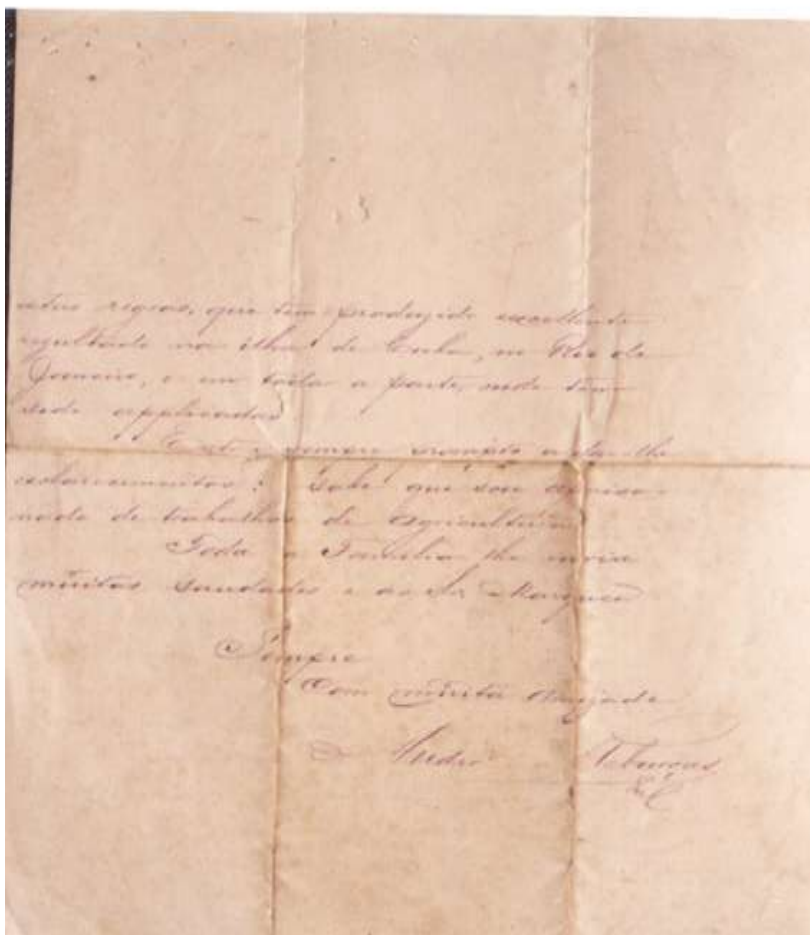 estas regras, que tem produzido excellente
resultado na ilha de Cuba, no Rio de
Janeiro, e em toda a parte, onde tem
sido applicadas
Estou sempre prompto a dar-lhe
esclarecimentos: Sabe que sou apaixo-
nado de trabalhos de agricultura
Toda a Familia lhe envia
muitas saudades e ao Sr. Marquez
Sempre
Com muita amizade
André Rebouças